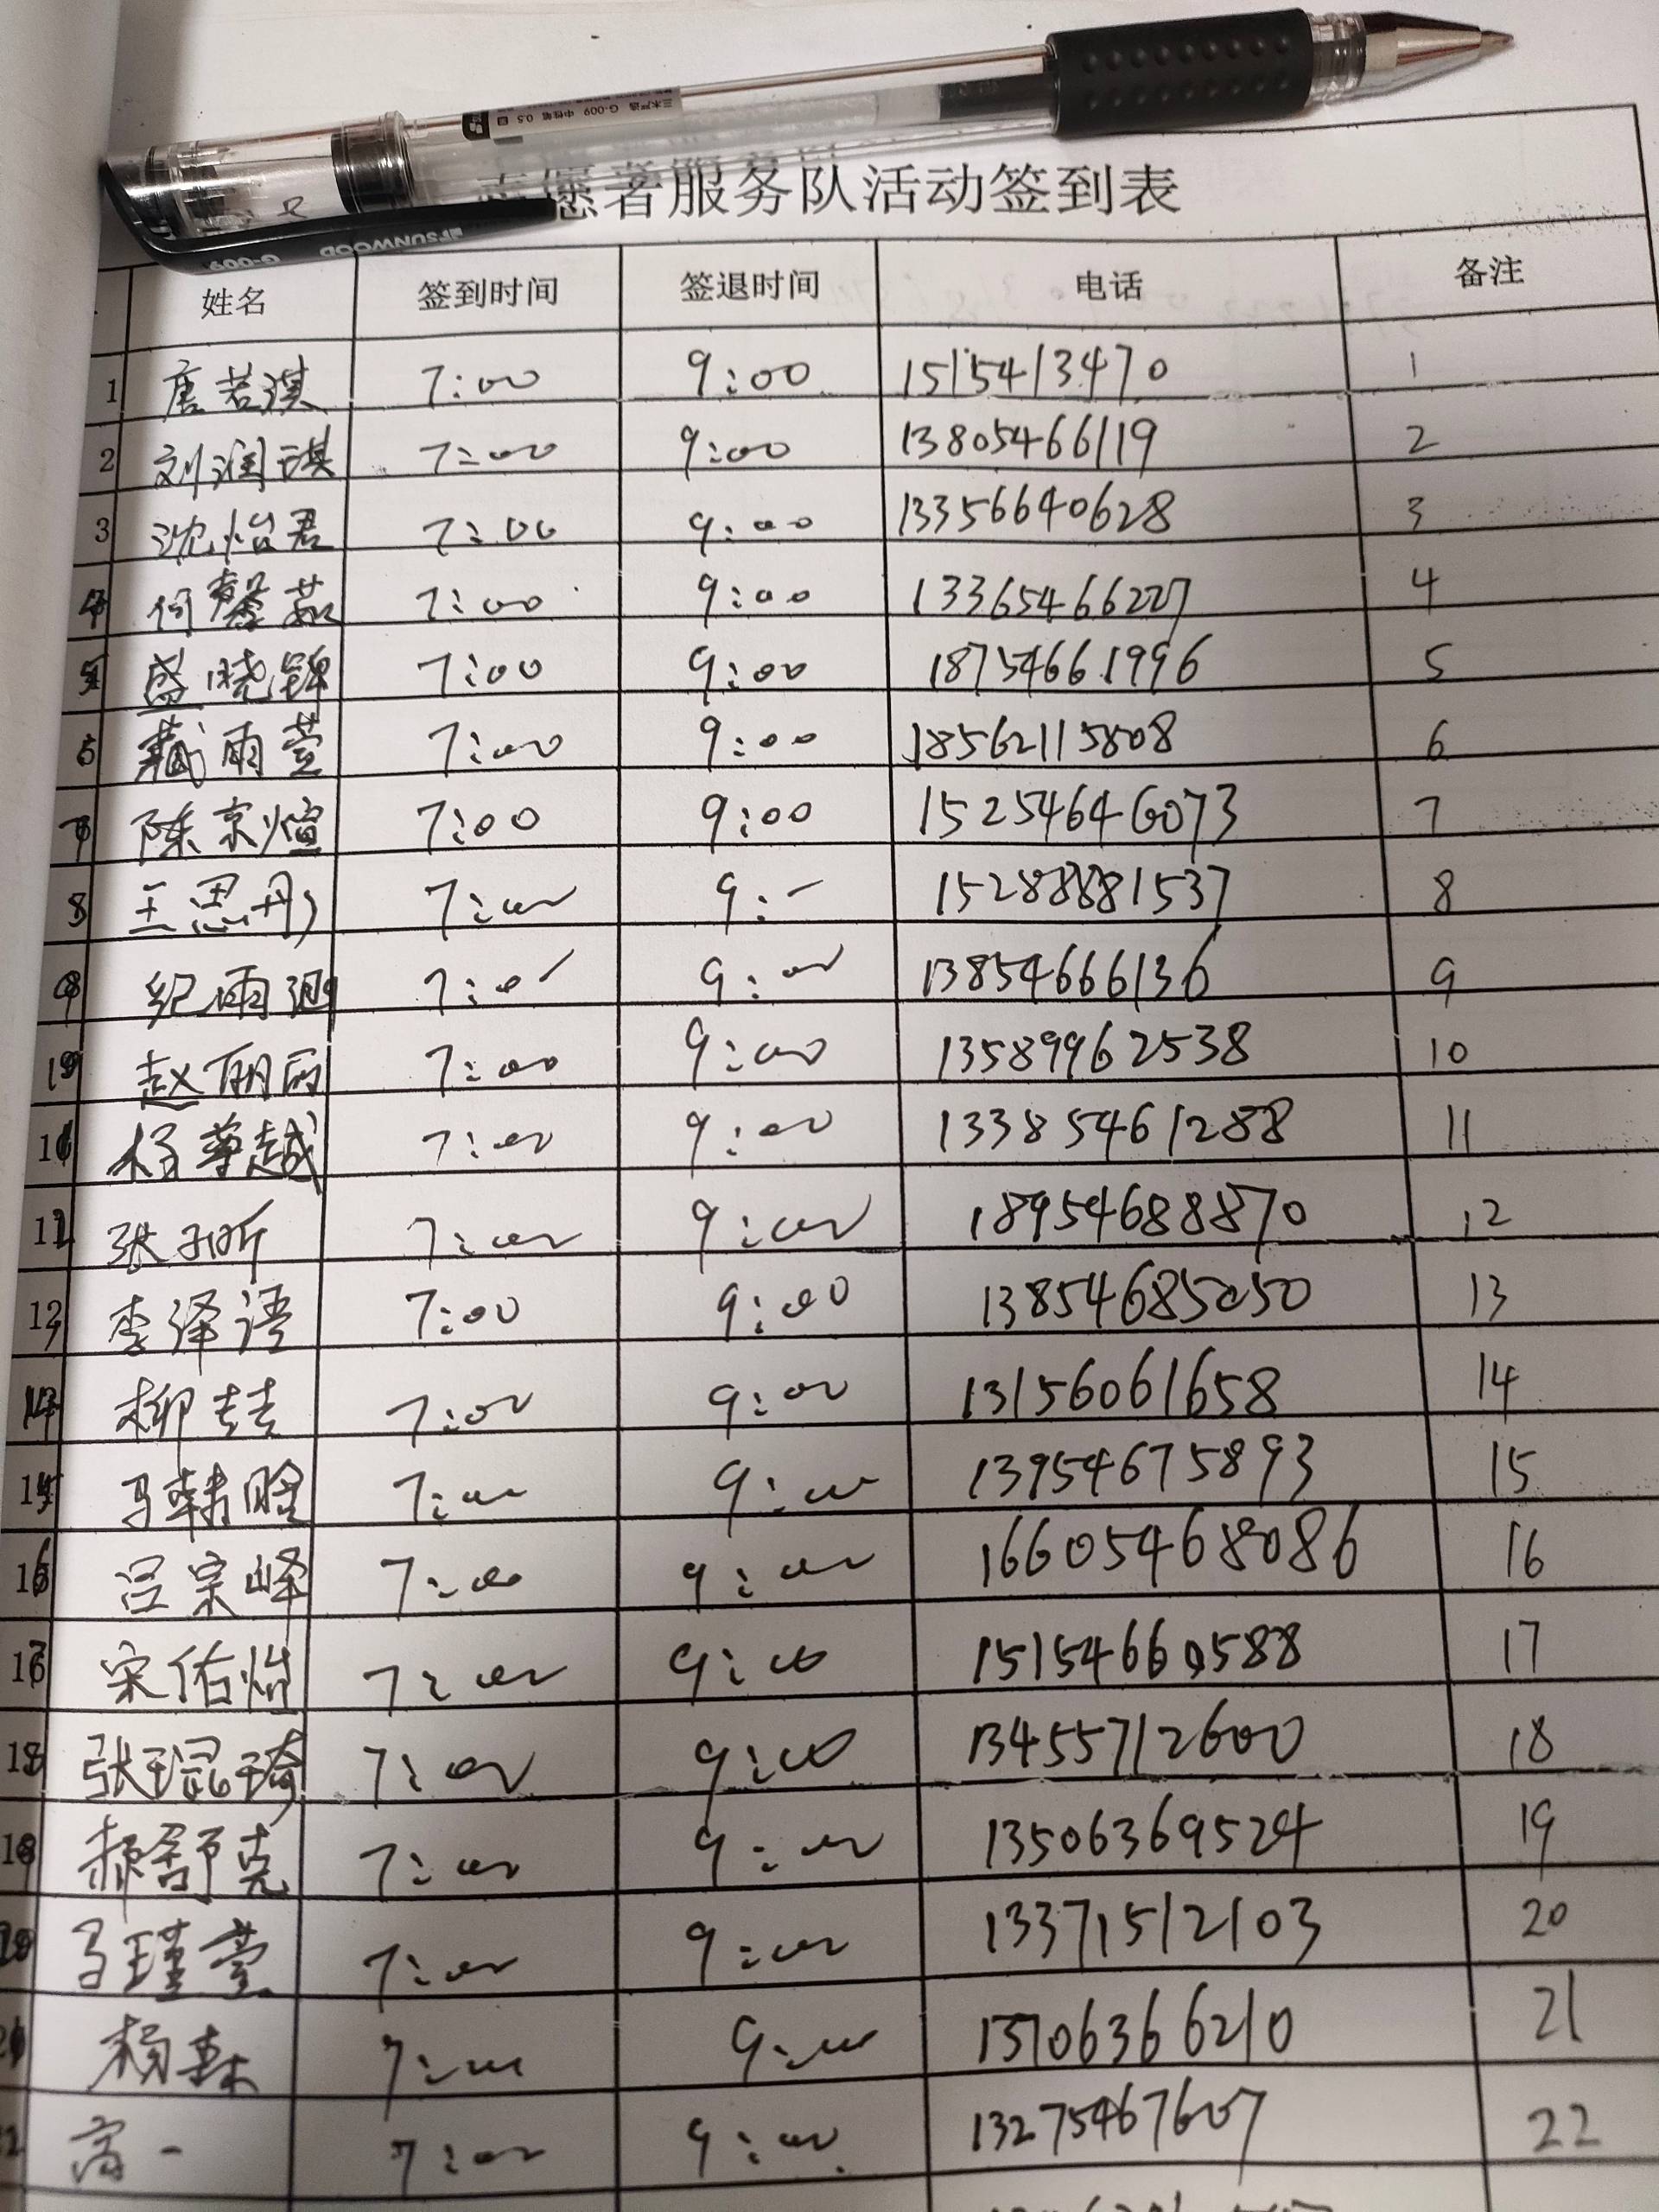 三木严选 G-009 中性笔 0.5
SUNWOOD G-009
志愿者服务队活动签到表
姓名 签到时间 签退时间 电话 备注
1 唐若淇 7:00 9:00 15154113470 1
2 刘润琪 7:00 9:00 13805466119 2
3 沈怡君 7:00 9:00 13356640628 3
4 何馨茹 7:00 9:00 13365466227 4
5 盛晓锦 7:00 9:00 18754661996 5
6 臧雨萱 7:00 9:00 18562115808 6
7 陈京煊 7:00 9:00 15254646073 7
8 王思彤 7:00 9: 15288881537 8
9 纪雨 7:00 9:00 13854666136 9
10 赵丽丽 7:00 9:00 13589962538 10
11 杨尊越 7:00 9:00 13385461288 11
12 张子昕 7:00 9:00 18954688870 12
13 李泽语 7:00 9:00 13854685050 13
14 柳喆 7:00 9:00 13156061658 14
15 马韩晗 7:00 9:00 13954675893 15
16 吕宗峰 7:00 9:00 16605468086 16
17 宋佑怡 7:00 9:00 15154660588 17
18 张琨琦 7:00 9:00 13455712600 18
19 郝舒克 7:00 9:00 13506369524 19
20 马瑾萱 7:00 9:00 13371512103 20
杨森 7:00 9:00 13706366210 21
高一 7:00 9:00 13275467607 22